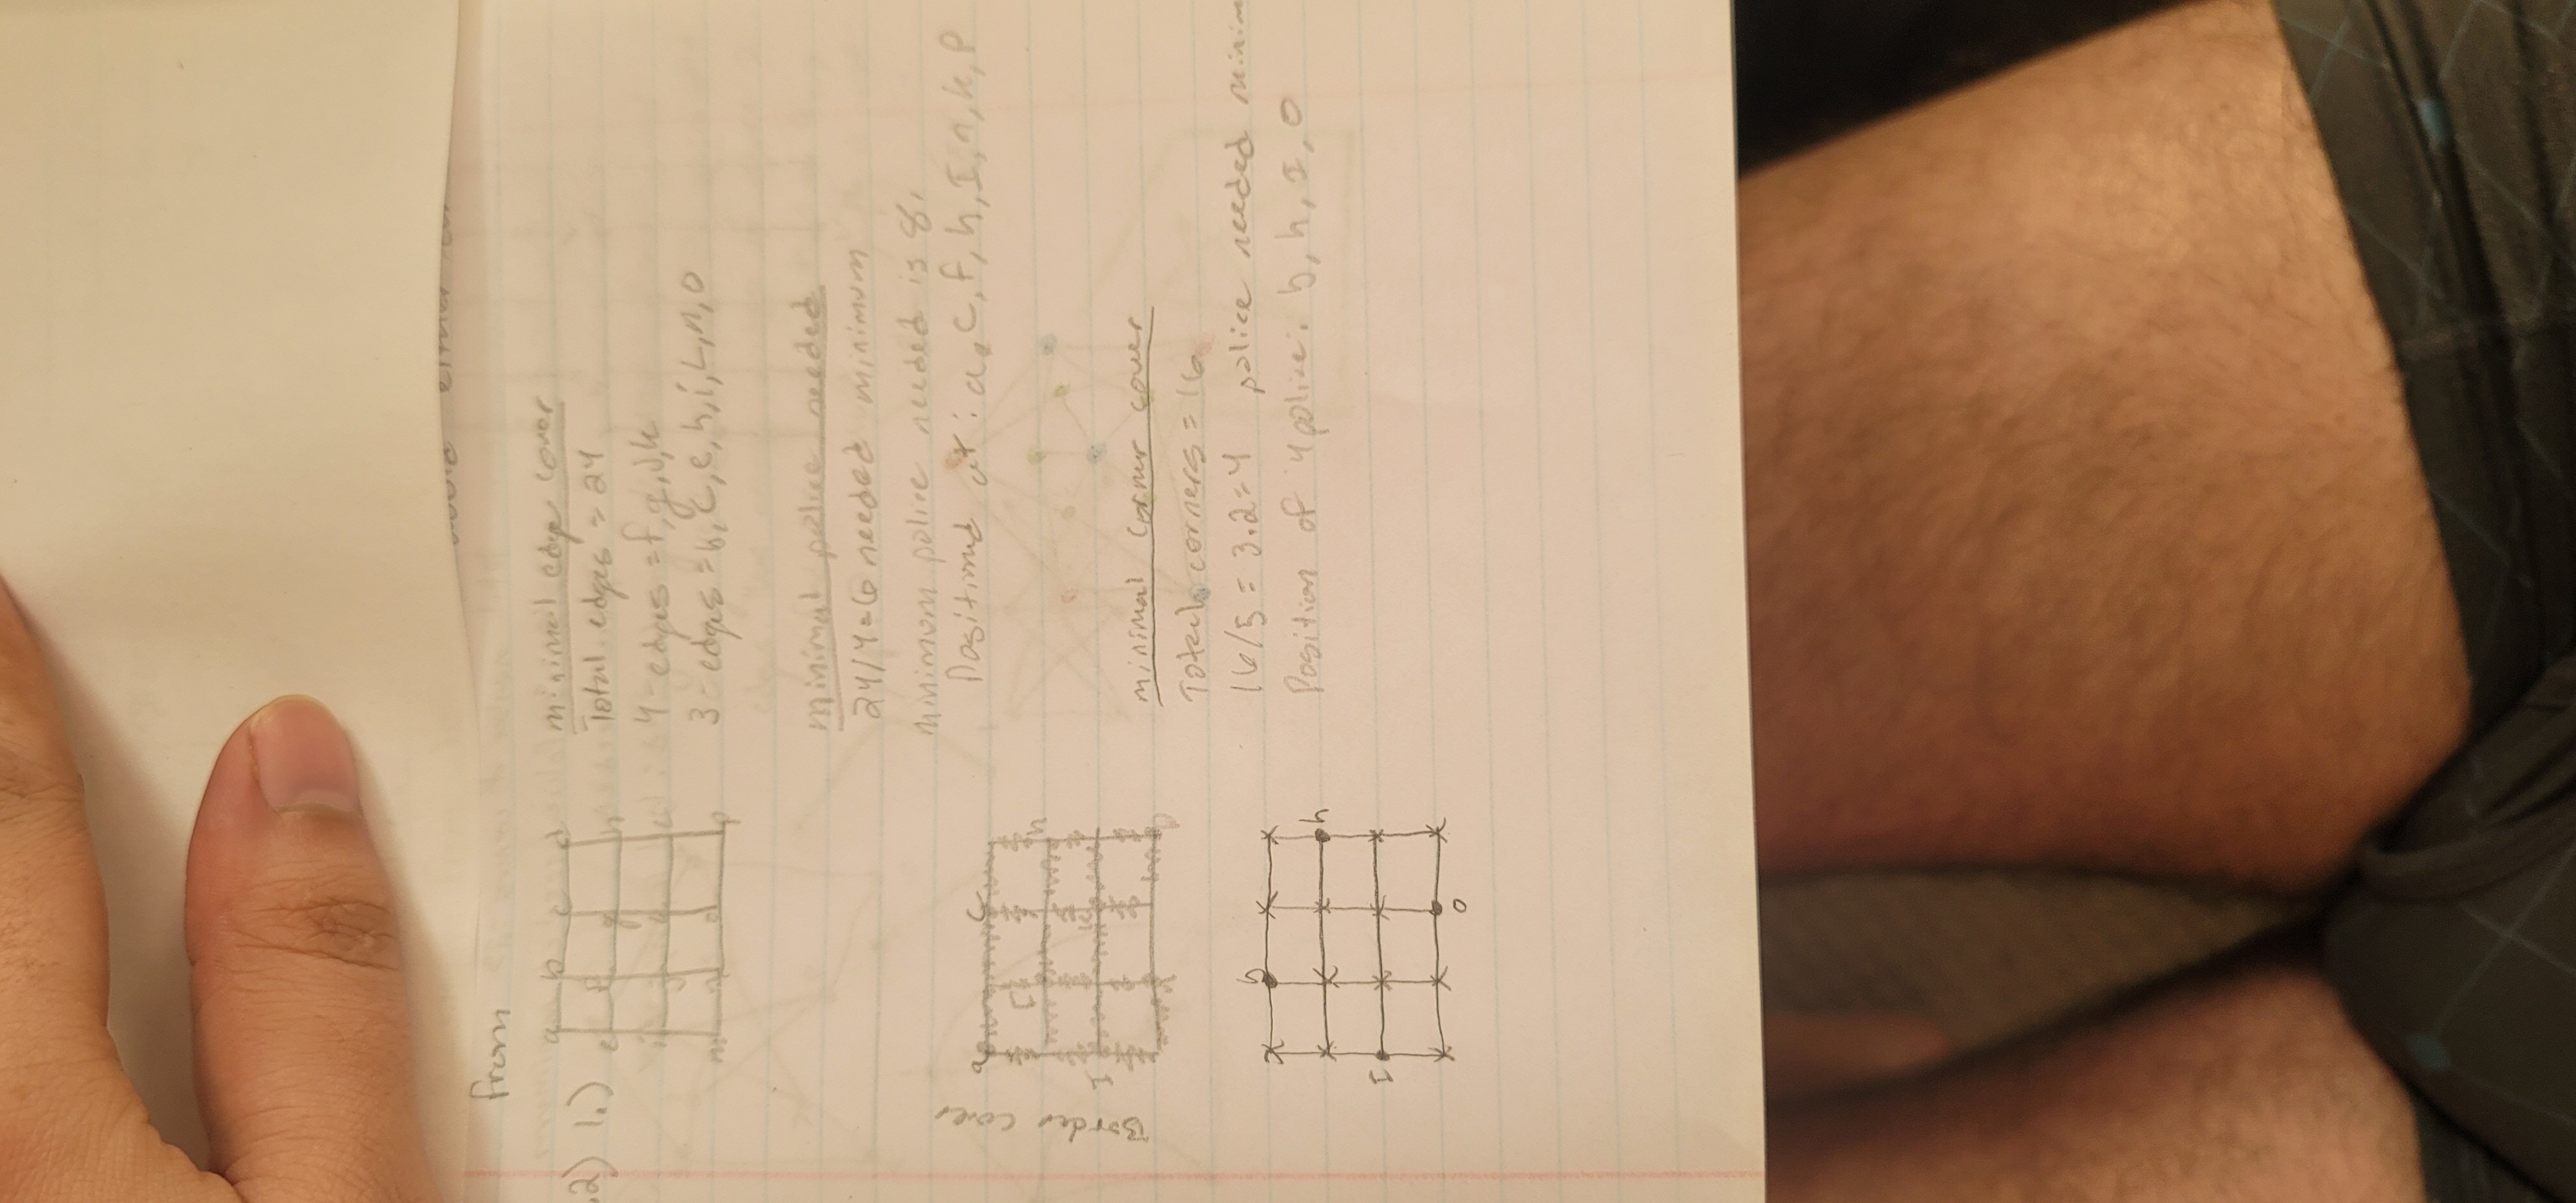 either
from
.2) 1.)
a b c d
e f g h
i j k L
m n o p
minimal edge cover
Total edges = 24
4 - edges = f, g, j, k
3 - edges = b, c, e, h, i, L, n, o
minimal police needed
24/4 = 6 needed minimum
minimum police needed is 8.
Positioned at: a, c, f, h, I, n, k, P
Border cover
a c
h
I
minimal corner cover
Total corners = 16
16/5 = 3.2 = 4 police needed minim
Position of 4 police: b, h, I, O
b
h
I
o